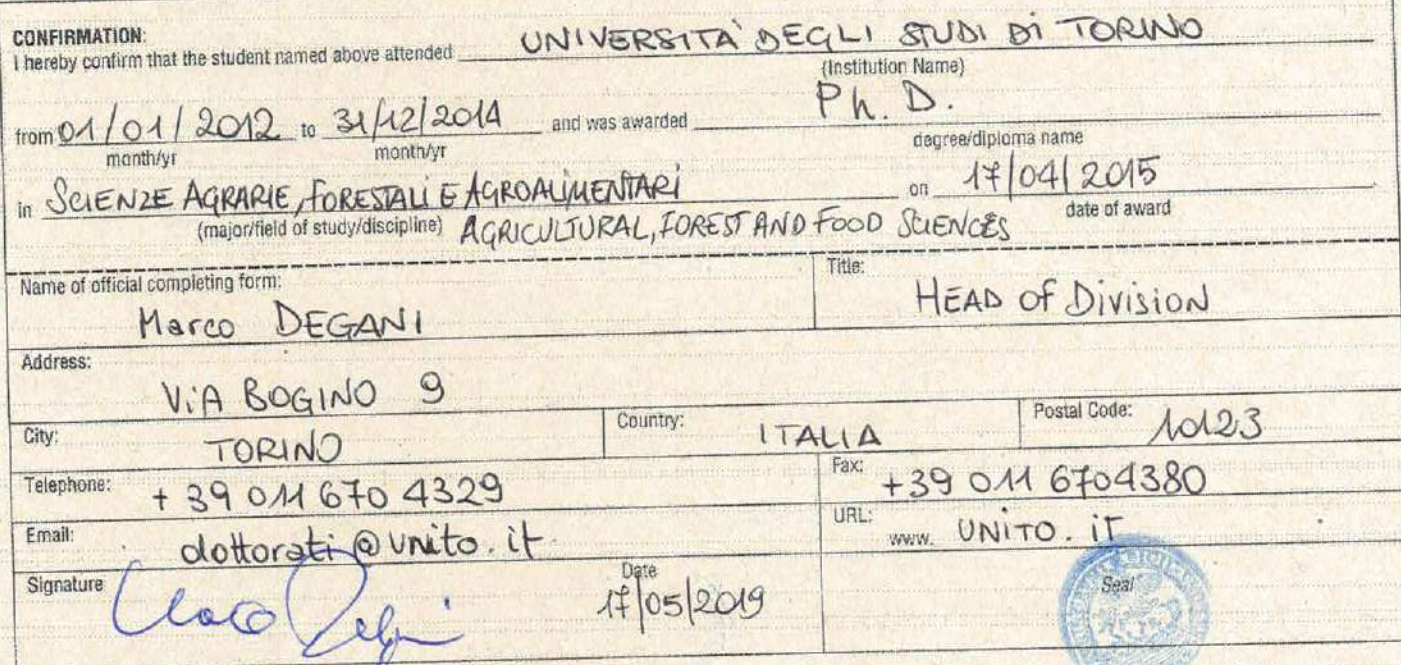 CONFIRMATION:
I hereby confirm that the student named above attended UNIVERSITÀ DEGLI STUDI DI TORINO
(Institution Name)
from 01/01/2012 to 31/12/2014 and was awarded Ph. D.
month/yr month/yr degree/diploma name
in SCIENZE AGRARIE, FORESTALI E AGROALIMENTARI on 17/04/2015
(major/field of study/discipline) AGRICULTURAL, FOREST AND FOOD SCIENCES date of award
Name of official completing form: Title:
Marco DEGANI HEAD of Division
Address:
ViA BOGINO 9
City: TORINO Country: ITALIA Postal Code: 10123
Telephone: +39 011 670 4329 Fax: +39 011 6704380
Email: dottorati@unito.it URL: www. UNITO.iT
Signature Date Seal
17/05/2019